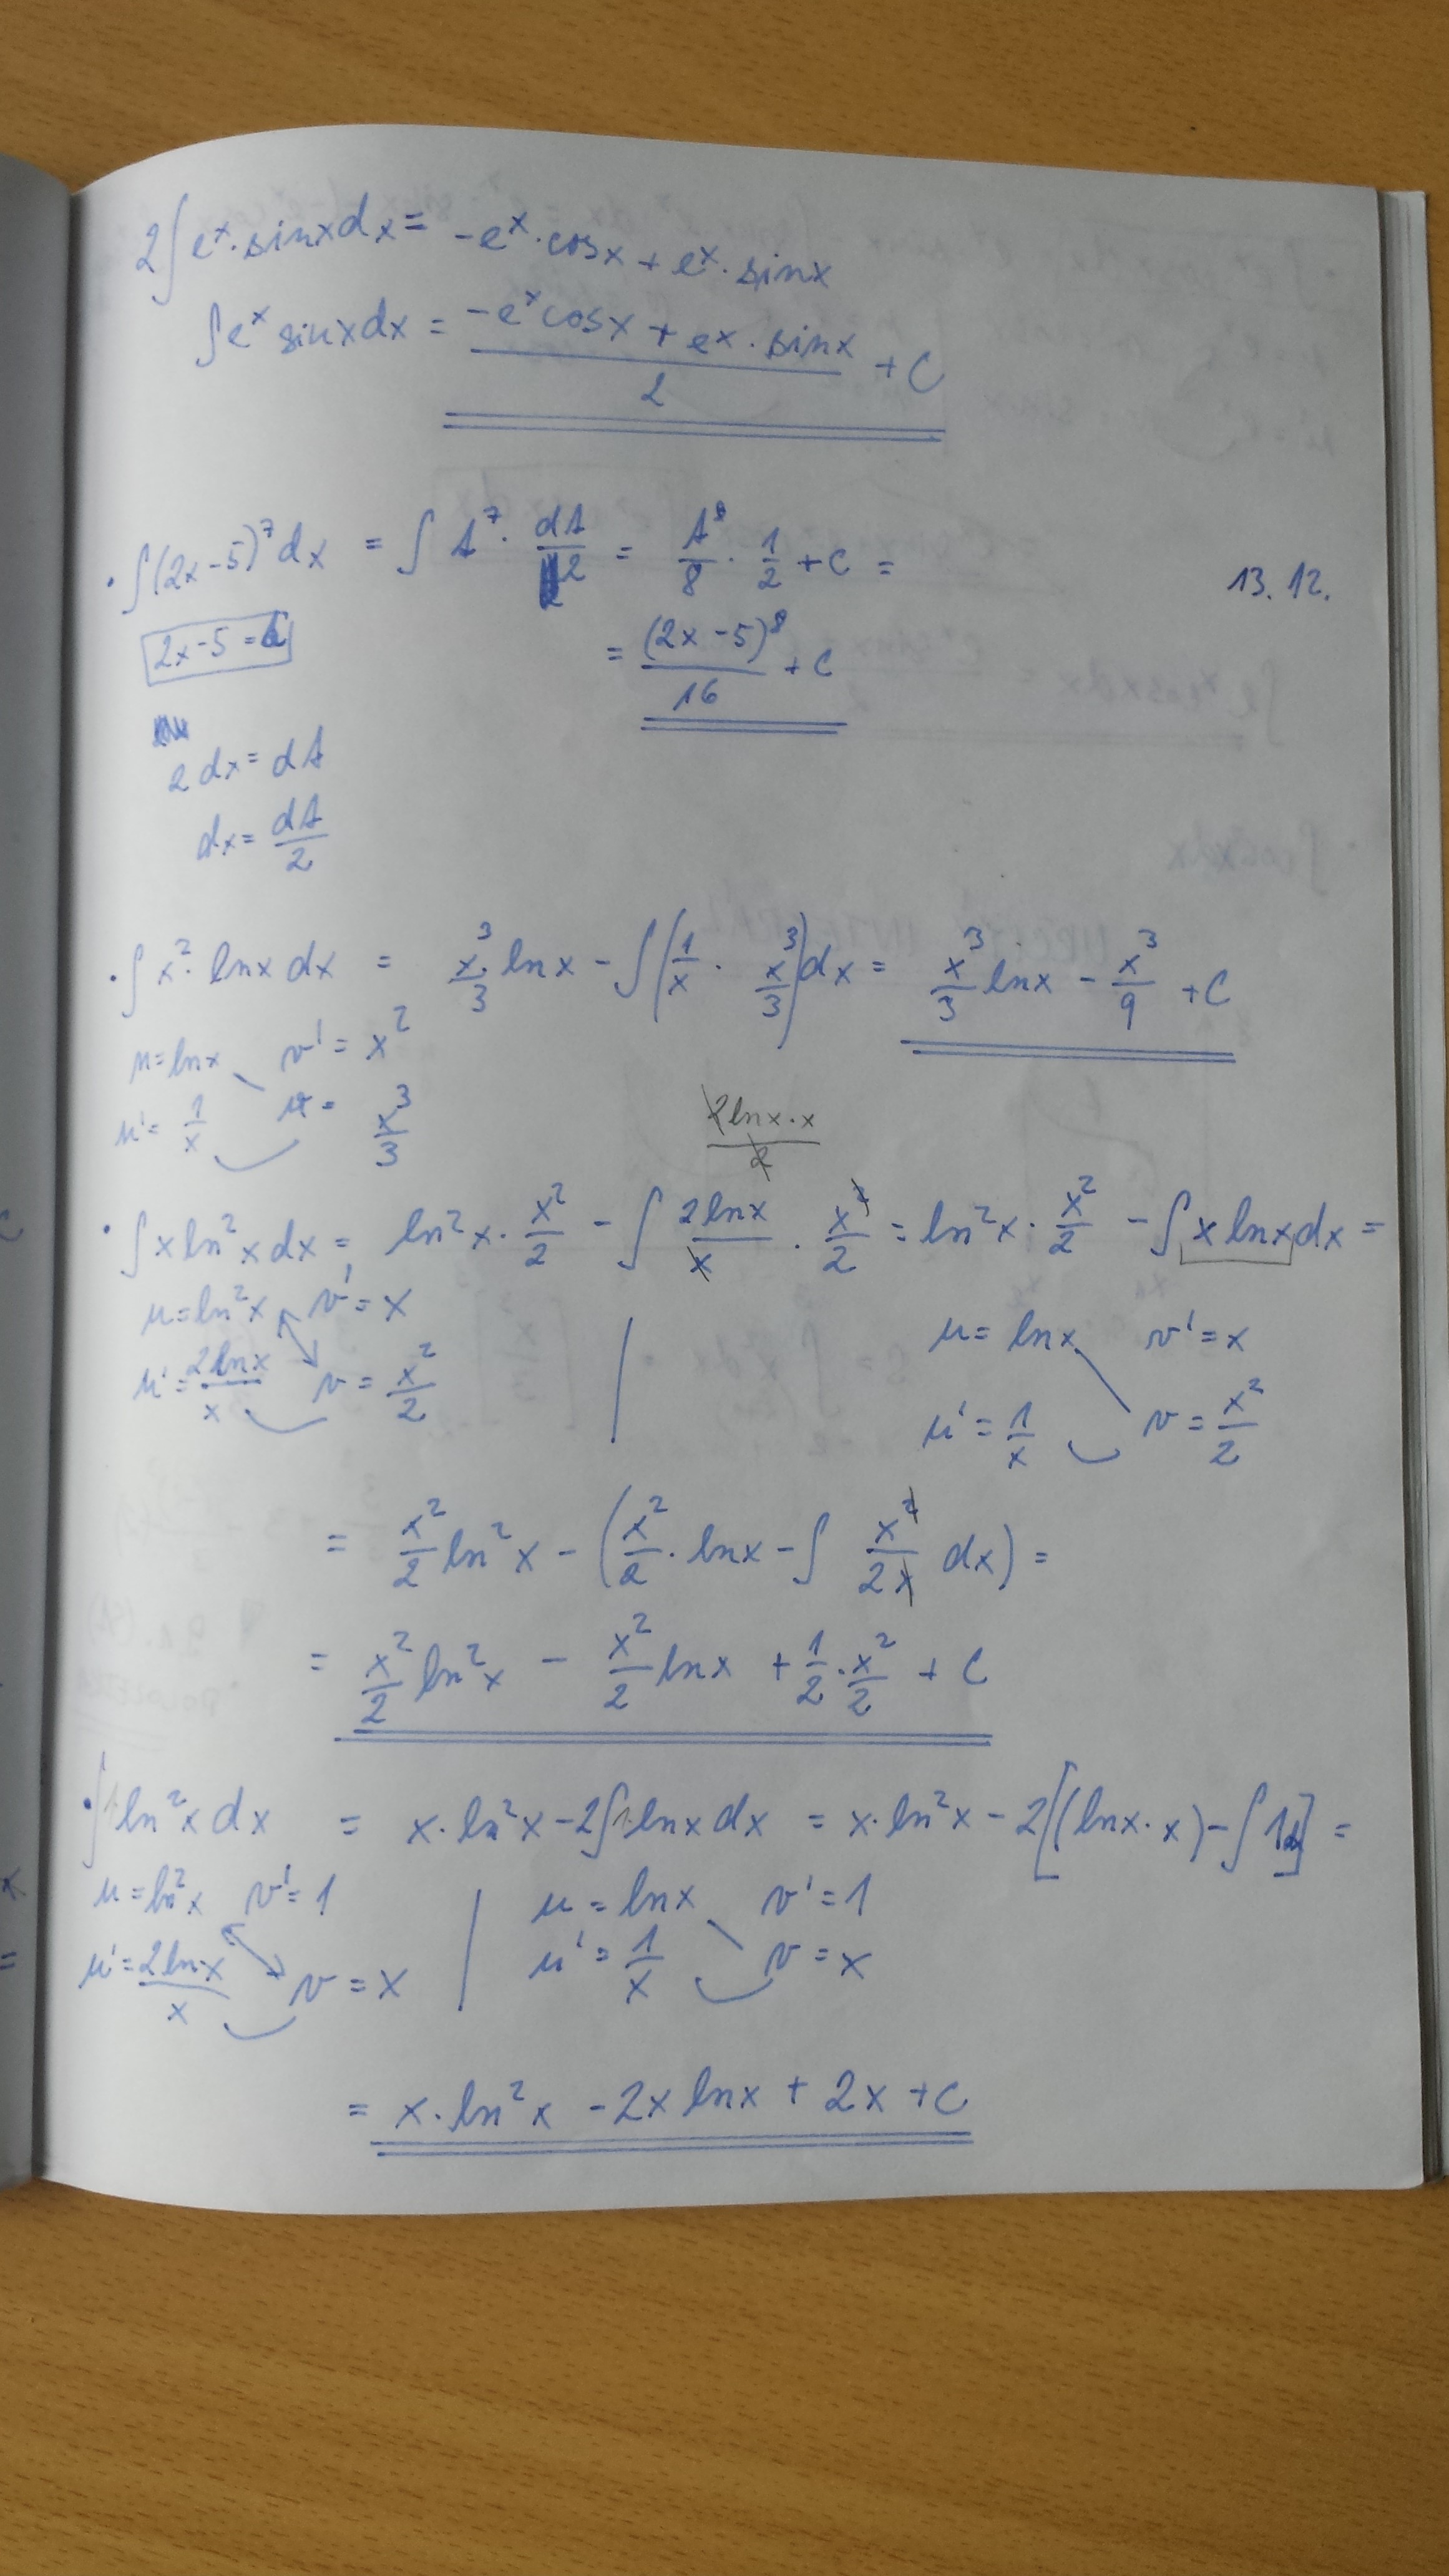 2∫eˣ·sinxdx = -eˣ·cosx + eˣ·sinx
∫eˣ sinxdx = (-eˣcosx + eˣ·sinx)/2 + C
13.12.
• ∫(2x-5)⁷dx = ∫t⁷·dt/2 = t⁸/8 · 1/2 + C =
2x-5 = t
= (2x-5)⁸/16 + C
2dx = dt
dx = dt/2
• ∫x²·lnx dx = x³/3 · lnx - ∫(1/x · x³/3)dx = x³/3 lnx - x³/9 + C
u = lnx v' = x²
u' = 1/x v = x³/3
2lnx·x/2
• ∫x ln²x dx = ln²x · x²/2 - ∫ 2lnx/x · x²/2 = ln²x · x²/2 - ∫x lnx dx =
u = ln²x v' = x | u = lnx v' = x
u' = 2lnx/x v = x²/2 | u' = 1/x v = x²/2
= x²/2 ln²x - (x²/2 · lnx - ∫ x²/2x dx) =
= x²/2 ln²x - x²/2 lnx + 1/2 · x²/2 + C
• ∫1·ln²x dx = x·ln²x - 2∫1·lnx dx = x·ln²x - 2[(lnx·x) - ∫1dx] =
u = ln²x v' = 1 | u = lnx v' = 1
u' = 2lnx/x v = x | u' = 1/x v = x
= x·ln²x - 2x lnx + 2x + C